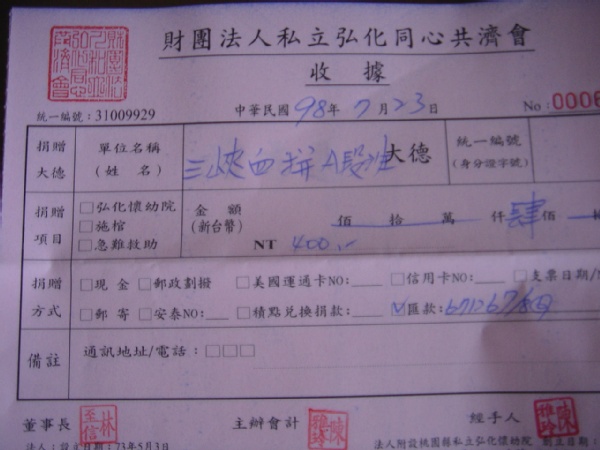 財團法人私立弘化同心共濟會
收據
統一編號：31009929
中華民國 98 年 7 月 23 日
No：0006
捐贈大德
單位名稱(姓 名)
三峽 A段 大德
統一編號(身分證字號)
捐贈項目
□弘化懷幼院
□施棺
□急難救助
金額(新台幣)
佰 拾 萬 仟 肆 佰
NT 400.-
捐贈方式
□現 金 □郵政劃撥 □美國運通卡NO: □信用卡NO: □支票日期/
□郵 寄 □安泰NO: □積點兌換捐款: ✓匯款:
備註
通訊地址/電話：□□□
董事長 林至信
主辦會計 陳雅玲
經手人 陳雅玲
法人：設立日期:73年5月3日
法人附設桃園縣私立弘化懷幼院 創立日期: